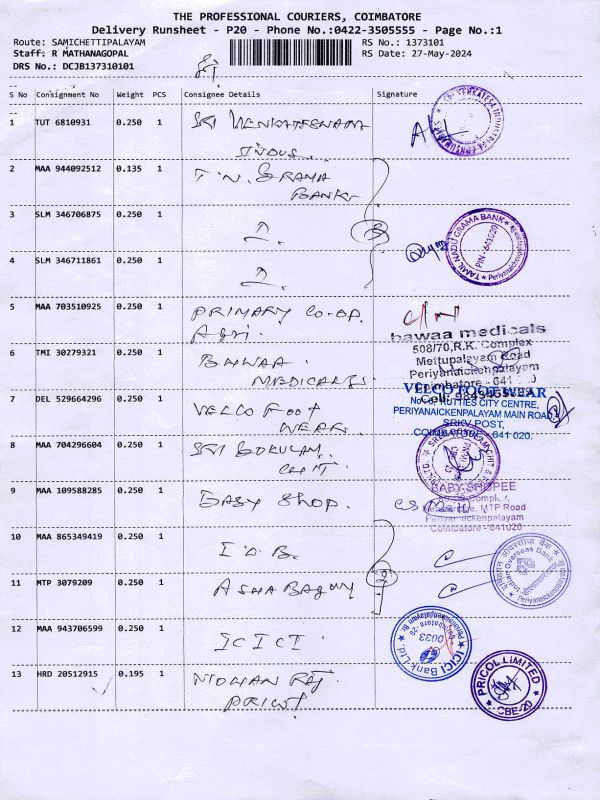 THE PROFESSIONAL COURIERS, COIMBATORE
Delivery Runsheet - P20 - Phone No.:0422-3505555 - Page No.:1
Route: SAMICHETTIPALAYAM RS No.: 1373101
Staff: R MATHANAGOPAL RS Date: 27-May-2024
DRS No.: DCJB137310101
S No Consignment No Weight PCS Consignee Details Signature
1 TUT 6810931 0.250 1 SRI VENKATESWARA
INDUS.
2 MAA 944092512 0.135 1 T.N. GRAMA
BANK
3 SLM 346706875 0.250 1
4 SLM 346711861 0.250 1
TAMIL NADU GRAMA BANK
PIN - 641020
5 MAA 703510925 0.250 1 PRIMARY CO-OP.
Agri.
6 TMI 30279321 0.250 1 BAWAA
MEDICALS
bawaa medicals
508/70,R.K. Complex
Mettupalayam Road
Periyanaickenpalayam
Coimbatore - 641 020
7 DEL 529664296 0.250 1 VELCO FOOT
WEAR
VELCO FOOT WEAR
KUTTIES CITY CENTRE,
PERIYANAICKENPALAYAM MAIN ROAD,
SRKV POST,
COIMBATORE - 641 020.
8 MAA 704296604 0.250 1 SRI GOKULAM
CHIT
9 MAA 109588285 0.250 1 BABY SHOP.
BABY SHOPEE
MTP Road
Periyanaickenpalayam
Coimbatore - 641020
10 MAA 865349419 0.250 1 I.O.B.
Indian Overseas Bank
11 MTP 3079209 0.250 1 ASHA
12 MAA 943706599 0.250 1 ICICI
ICICI Bank Ltd.
0033
13 HRD 20512915 0.195 1 MOHAN RAJ
PRICOL
PRICOL LIMITED
CBE-20